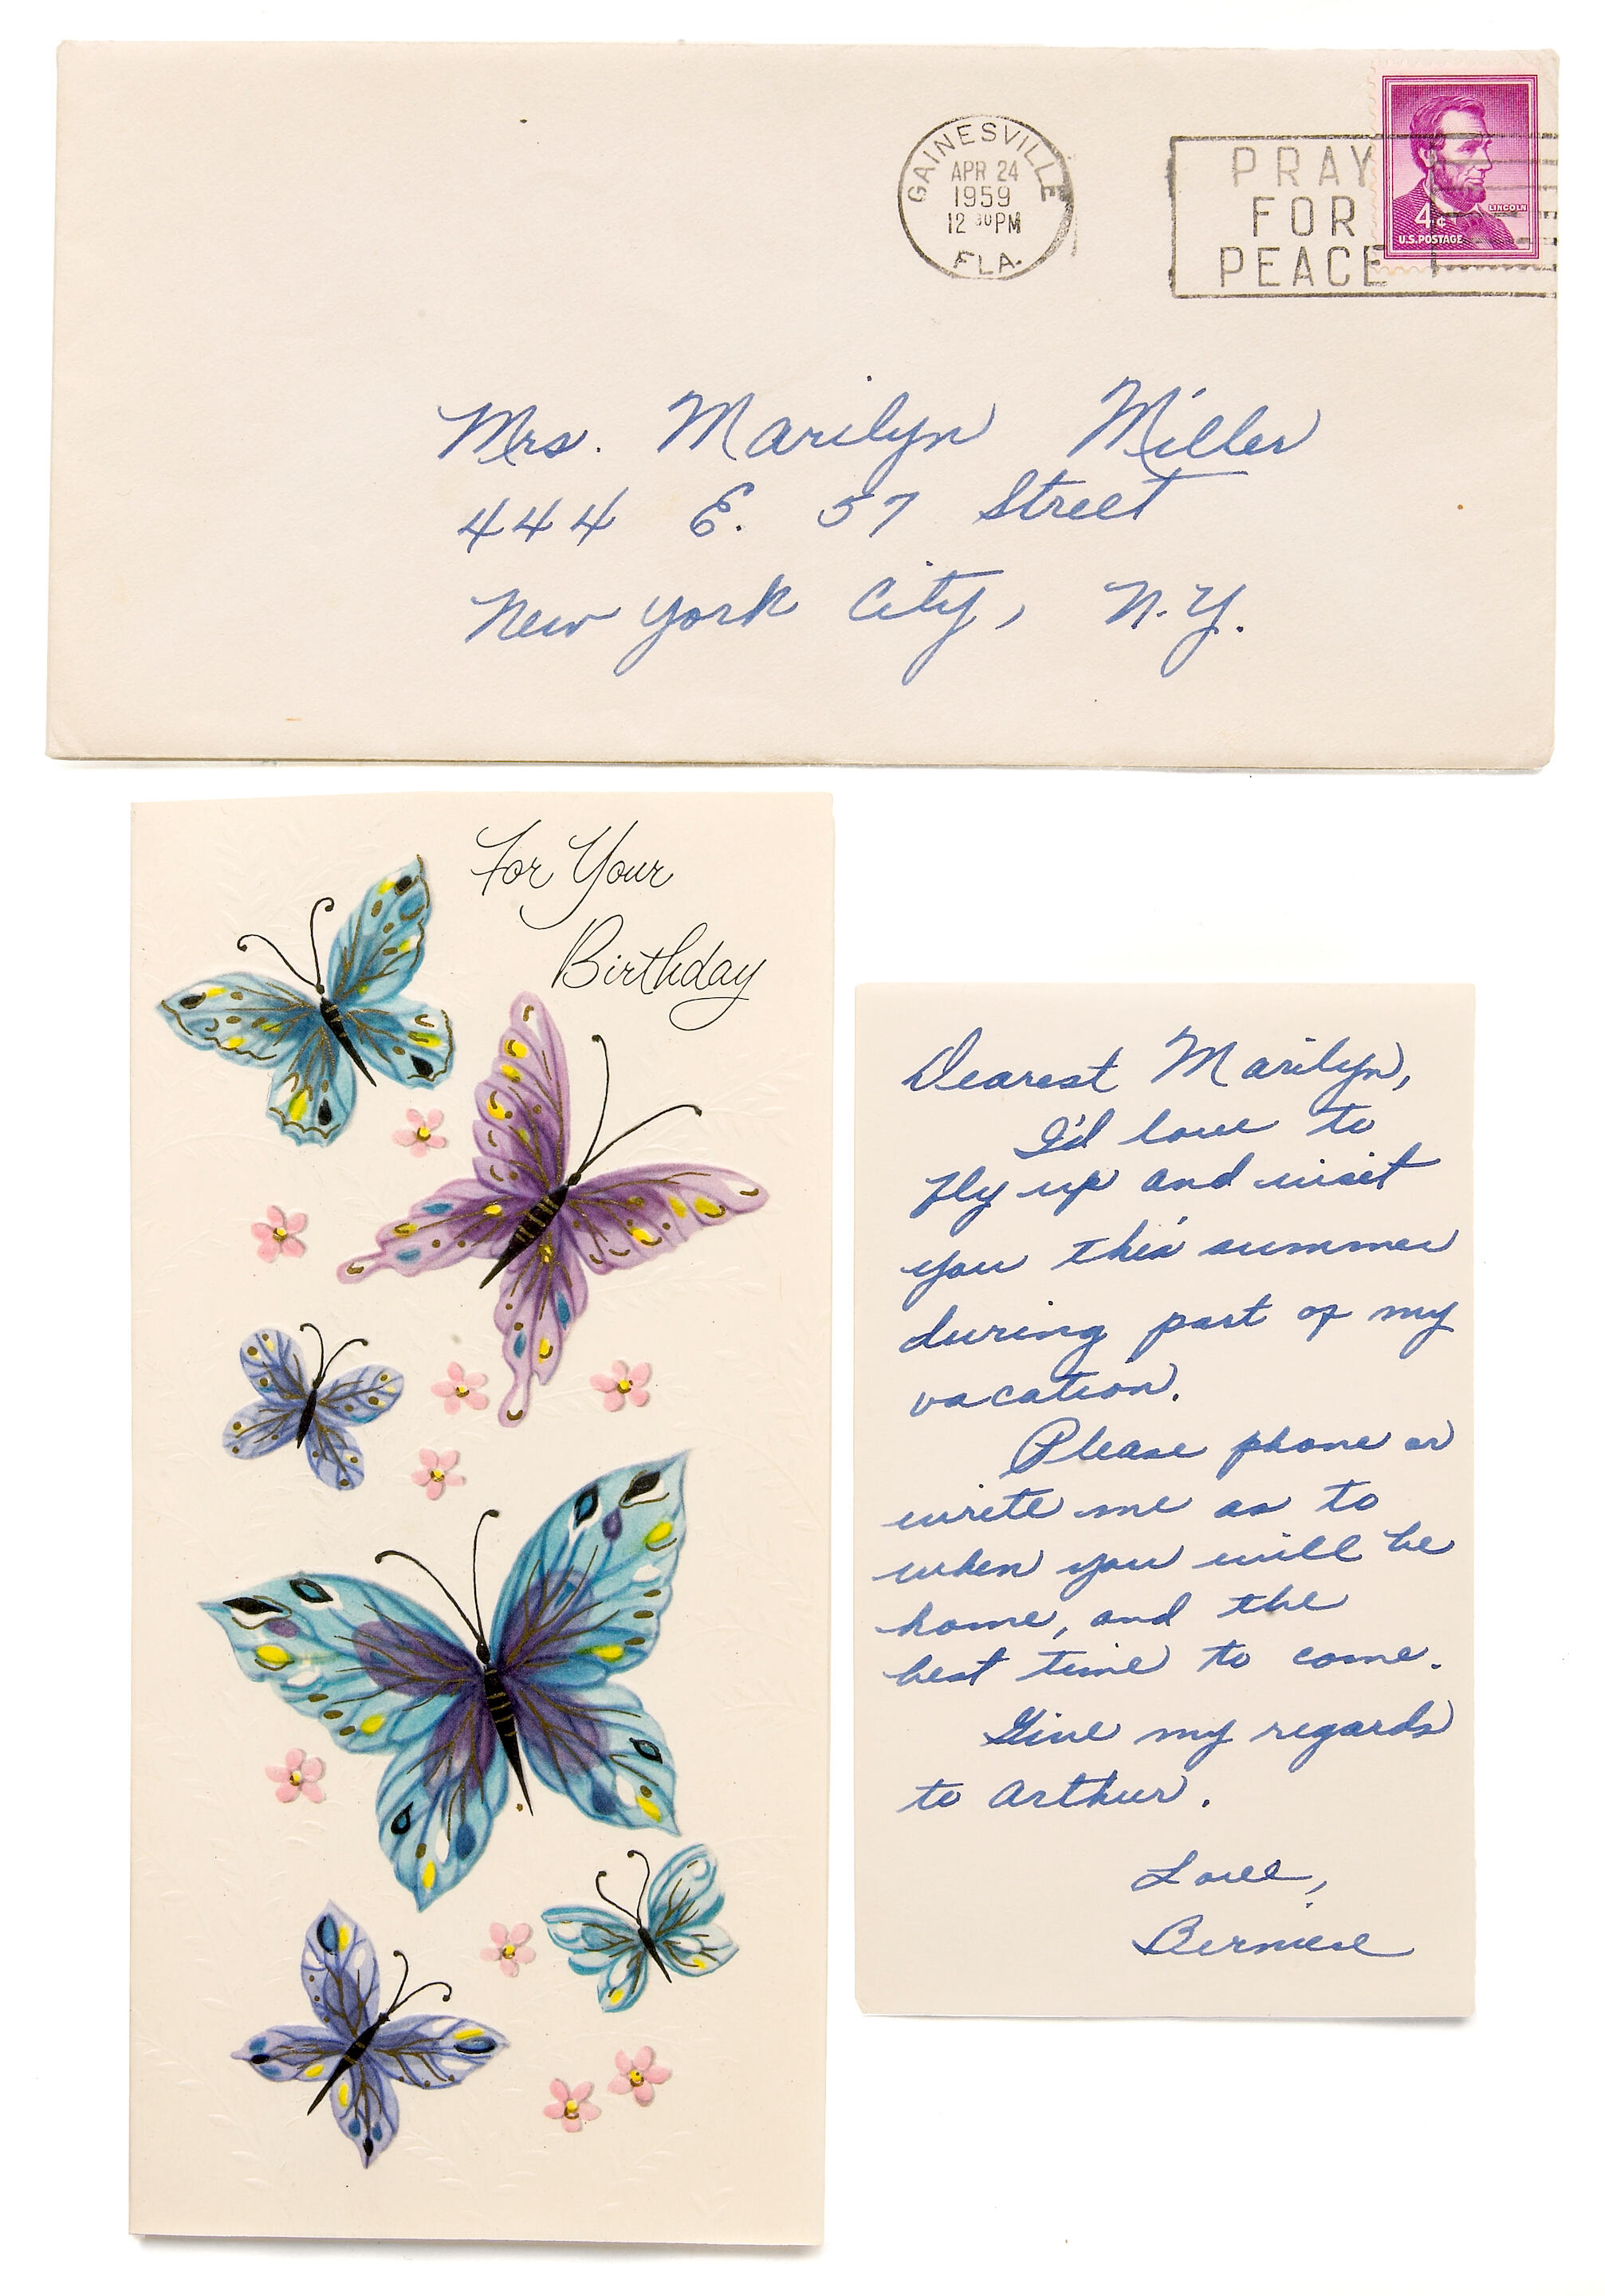 GAINESVILLE
APR 24
1959
12 30 PM
FLA.
PRAY
FOR
PEACE
LINCOLN
4¢
U.S. POSTAGE
Mrs. Marilyn Miller
444 E. 57 Street
New York City, N.Y.
For Your
Birthday
Dearest Marilyn,
I'd love to
fly up and visit
you this summer
during part of my
vacation.
Please phone or
write me as to
when you will be
home, and the
best time to come.
Give my regards
to Arthur.
Love,
Berniece